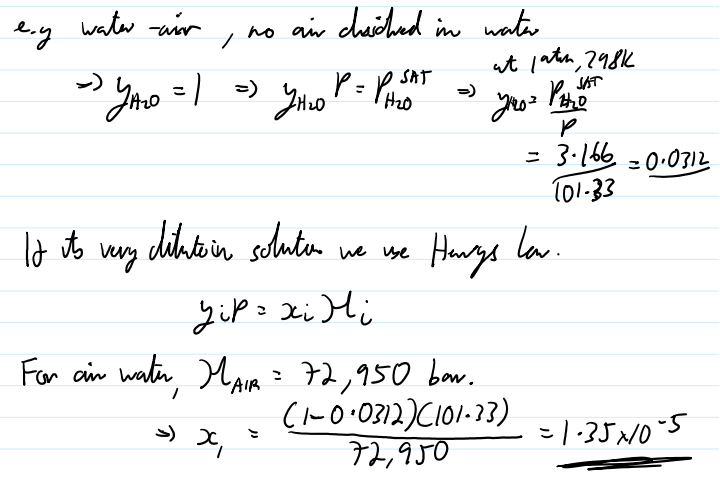 e.g water-air, no air dissolved in water
at 1 atm, 298K
=> y_H2O = 1 => y_H2O P = P_H2O^SAT => y_H2O = P_H2O^SAT / P
= 3.166 / 101.33 = 0.0312
If its very dilute in solution we use Henrys law.
y_i P = x_i H_i
For air water, H_AIR = 72,950 bar.
=> x_1 = (1-0.0312)(101.33) / 72,950 = 1.35x10^-5